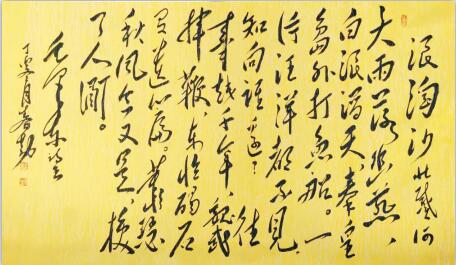 浪淘沙北戴河
大雨落幽燕、
白浪滔天、秦皇
岛外打鱼船。一
片汪洋都不见
知向谁边？往
事越千年、魏武
挥鞭、东临碣石
有遗篇。萧瑟
秋风今又是、换
了人间。
毛泽东